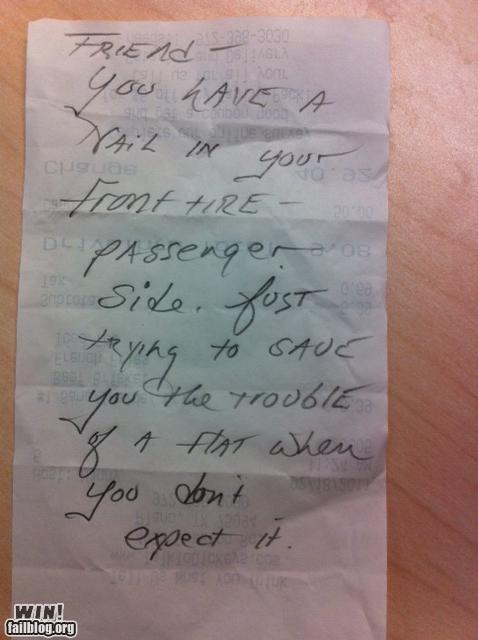 Friend -
You have a
nail in your
front tire -
passenger
side. Just
trying to save
you the trouble
of a flat when
you don't
expect it.
WIN!
failblog.org